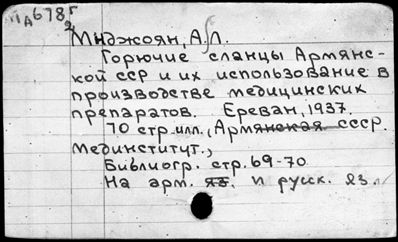 11A678г
2
Мнджоян, А. Л.
Горючие сланцы Армянс-
кой сср и их использование в
производстве медицинских
препаратов. Ереван, 1937.
70 стр. илл., Армянская ссср.
мединститут.,
Библиогр. стр. 69-70
На арм. яз. и русск. яз